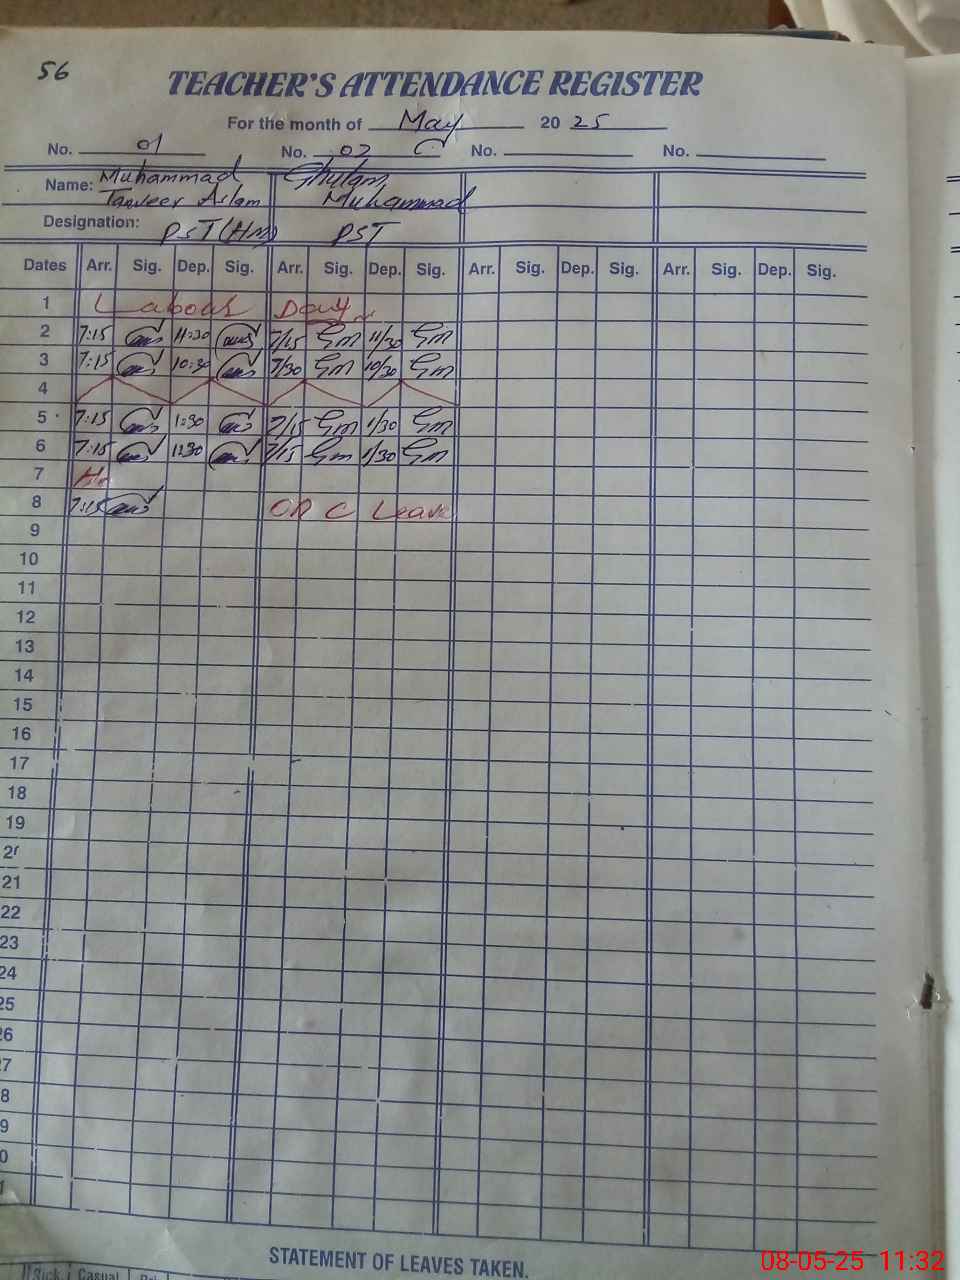 56
TEACHER'S ATTENDANCE REGISTER
For the month of May 20 25
No. 01 No. 02 No. No.
Name: Muhammad Tanveer Aslam Ghulam Muhammad
Designation: PST (Hm) PST
Dates Arr. Sig. Dep. Sig. Arr. Sig. Dep. Sig. Arr. Sig. Dep. Sig. Arr. Sig. Dep. Sig.
1 Labour Day
2 7:15 11:30 7/15 Gm 11/30 Gm
3 7:15 10:30 7/30 Gm 10/30 Gm
4
5 7:15 1:30 7/15 Gm 1/30 Gm
6 7:15 7/15 Gm 1/30 Gm
7
8 7:15 C Leave
9
10
11
12
13
14
15
16
17
18
19
21
22
23
24
25
26
STATEMENT OF LEAVES TAKEN.
Sick Casual
08-05-25 11:32